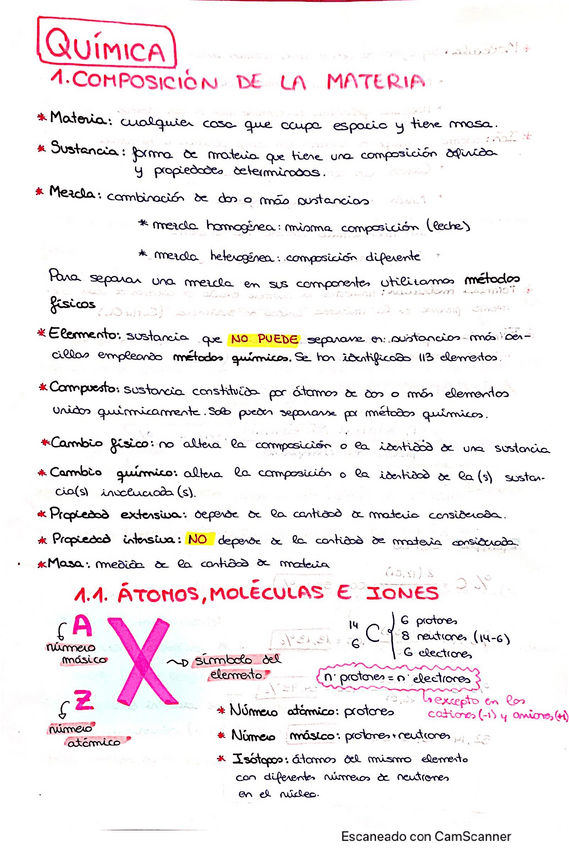 QUÍMICA
1. COMPOSICIÓN DE LA MATERIA
* Materia: cualquier cosa que ocupa espacio y tiene masa.
* Sustancia: forma de materia que tiene una composición definida
y propiedades determinadas.
* Mezcla: combinación de dos o más sustancias
* mezcla homogénea: misma composición (leche)
* mezcla heterogénea: composición diferente
Para separar una mezcla en sus componentes utilizamos métodos
físicos
* Elemento: sustancia que NO PUEDE separarse en sustancias más sen-
cillas empleando métodos químicos. Se han identificado 113 elementos.
* Compuesto: sustancia constituida por átomos de dos o más elementos
unidos químicamente. Solo pueden separarse por métodos químicos.
* Cambio físico: no altera la composición o la identidad de una sustancia
* Cambio químico: altera la composición o la identidad de la(s) sustan-
cia(s) involucrada(s).
* Propiedad extensiva: depende de la cantidad de materia considerada.
* Propiedad intensiva: NO depende de la cantidad de materia considerada
* Masa: medida de la cantidad de materia
1.1. ÁTOMOS, MOLÉCULAS E IONES
A
número
másico
X
símbolo del
elemento
Z
número
atómico
14
6
C
6 protones
8 neutrones (14-6)
6 electrones
nº protones = nº electrones
excepto en los
cationes (-1) y aniones (+1)
* Número atómico: protones
* Número másico: protones + neutrones
* Isótopos: átomos del mismo elemento
con diferentes números de neutrones
en el núcleo.
Escaneado con CamScanner